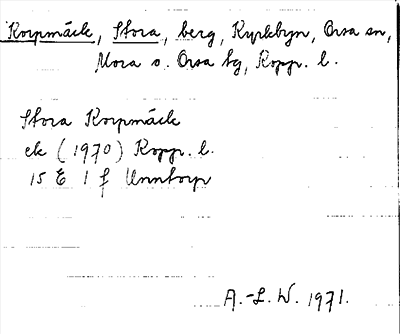 Korpmäck, Stora, berg, Kyrkbyn, Orsa sn,
Mora o. Orsa tg, Kopp. l.
Stora Korpmäck
ek (1970) Kopp. l.
15 E 1 f Unntorp
A.-L. W. 1971.